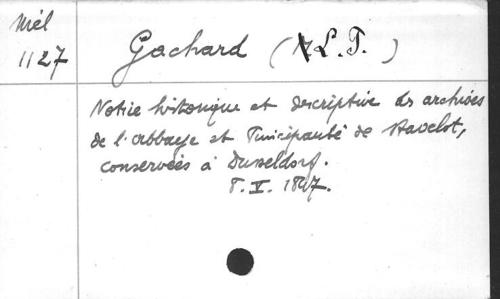 Mél
1127
Gachard (L.P.)
Notice historique et descriptive des archives
de l'abbaye et Principauté de Stavelot,
conservées à Dusseldorf.
8.V.1847.